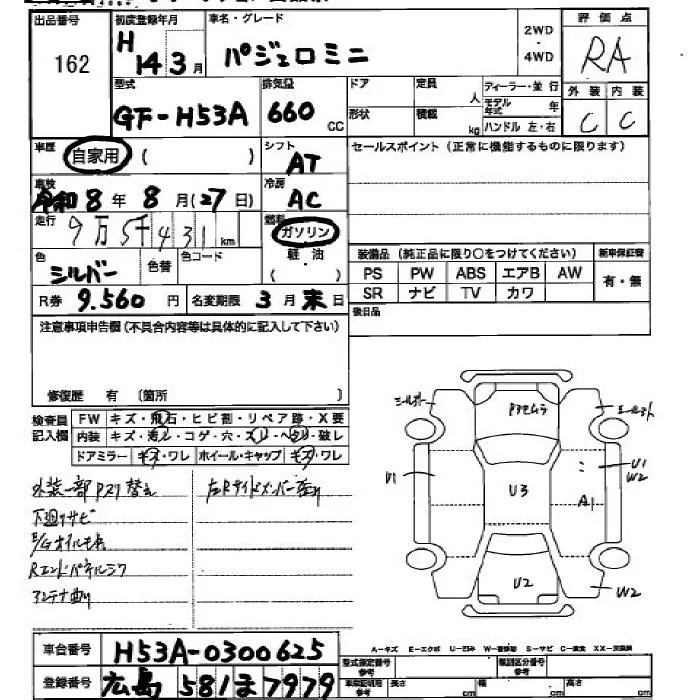 出品番号 初度登録年月 車名・グレード 2WD 評価点
162 H 14年3月 パジェロミニ ・ 4WD RA
型式 排気量 ドア 定員 人 ディーラー・並行 外装 内装
GF-H53A 660 CC 形状 積載 kg モデル年式 年 C C
ハンドル 左・右
車歴 自家用 ( ) シフト AT セールスポイント (正常に機能するものに限ります)
車検 令和 8年 8月(27日) 冷房 AC
走行 9万5千431km 燃料 ガソリン
軽・油
( ・ )
色 シルバー 色替 色コード
装備品 (純正品に限り○をつけてください) 新車保証書
PS PW ABS エアB AW 有・無
SR ナビ TV カワ
R券 9.560円 名変期限 3月末日
後日品
注意事項申告欄 (不具合内容等は具体的に記入して下さい)
修復歴 有 〔箇所 〕
検査員記入欄 FW キズ・飛石・ヒビ割・リペア跡・X要
内装 キズ・汚レ・コゲ・穴・スレ・ヘタリ・破レ
ドアミラー キズ・ワレ ホイール・キャップ キズ・ワレ
外装一部Pスリ替え
下廻りサビ
E/Gオイルモレ
アンテナ曲り
U1 U3 U1 W2
A1
U2 W2
A-キズ E-エクボ U-凹み W-補修跡 S-サビ C-腐食 XX-交換済
車台番号 H53A-0300625
登録番号 広島 581 ま 7979
型式指定番号 参考 類別区分番号 参考
車庫証明用 参考 長さ cm 幅 cm 高さ cm